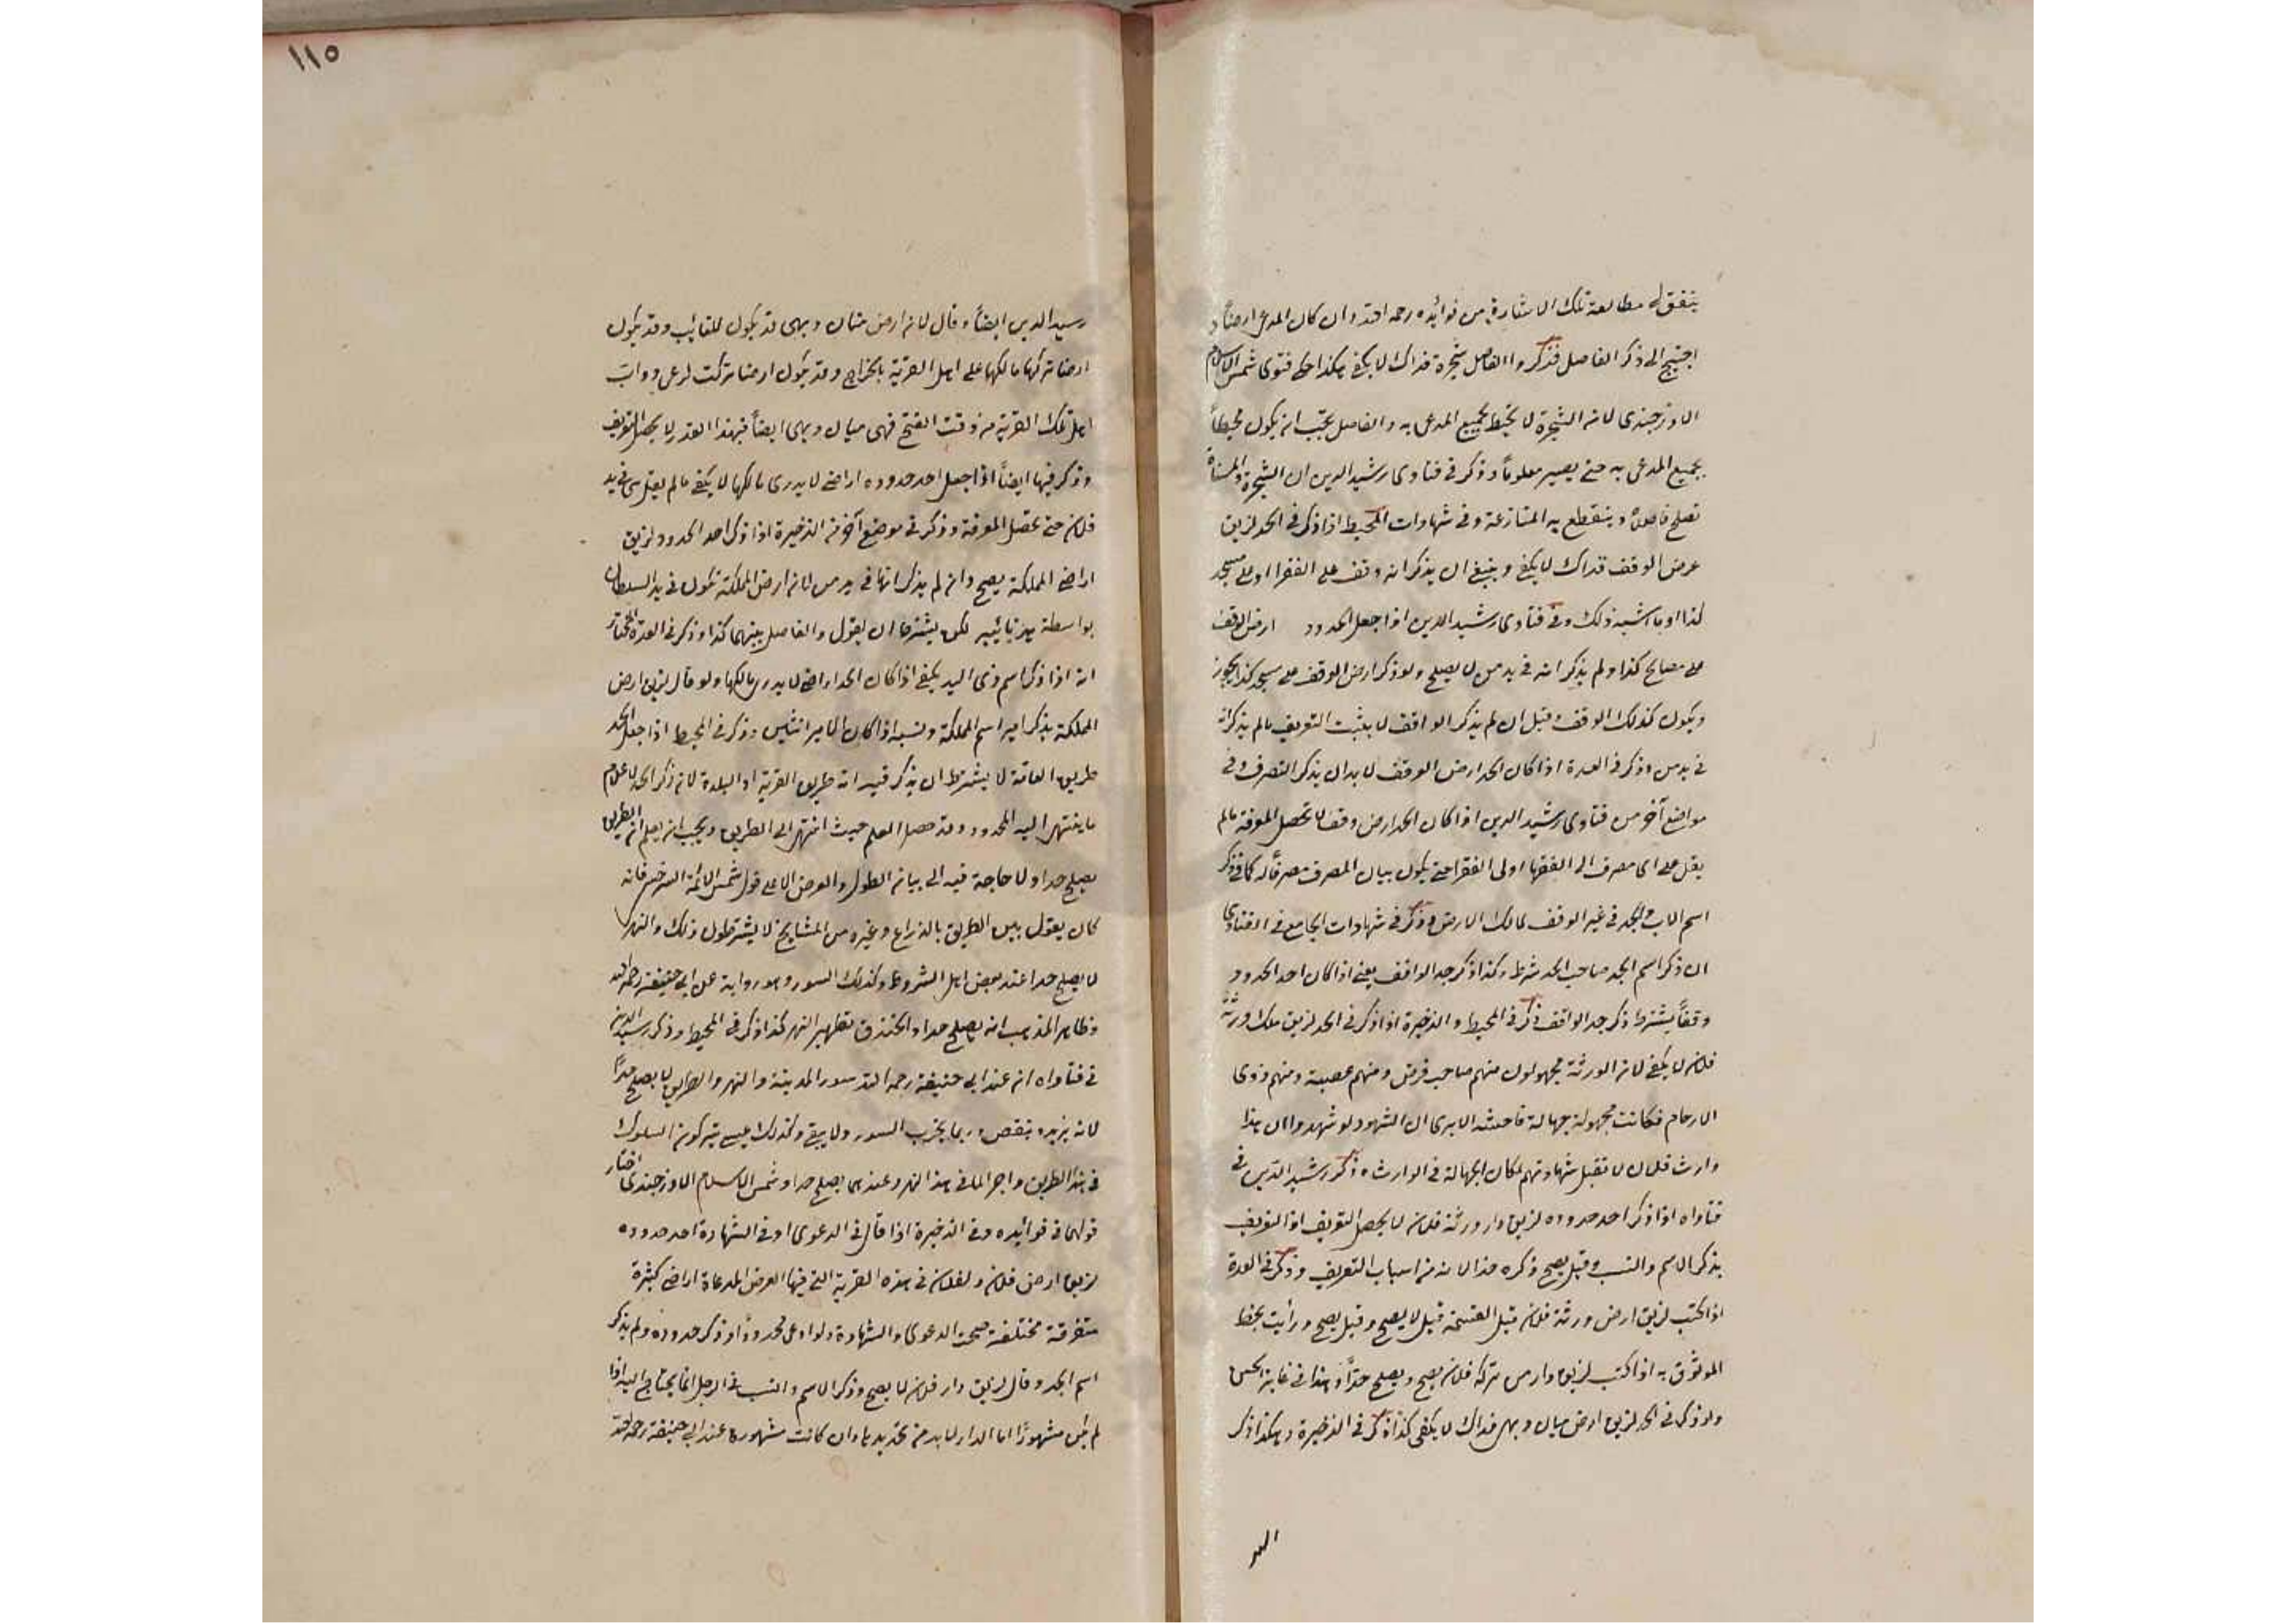 يتفق له مطالعة تلك الاشارة من فوائده رحمه الله وان كان المدعى ارضا و
احتيج الى ذكر الفاصل فذكروا الفاصل شجرة فذاك لا يكفى هكذا حكى فتوى شمس الاسلام
الاوزجندى لان الشجرة لا تحيط بجميع المدعى به والفاصل يجب ان يكون محيطاً
بجميع المدعى به حتى يصير معلوماً وذكر فى فتاوى رشيد الدين ان الشجرة والمسناة
تصلح فاصلاً وينقطع به المنازعة وفى شهادات المحيط اذا ذكر فى الحد لزيق
عرض الوقف فذاك لا يكفى وينبغى ان يذكر انه وقف على الفقرا او على مسجد
كذا او ما اشبه ذلك وفى فتاوى رشيد الدين اذا جعل الحدود ارض الوقف
على مصالح كذا ولم يذكر انه فى يد من لا يصلح ولو ذكر ارض الوقف على مسجد كذا يجوز
ويكون كذلك الوقف وقيل ان لم يذكر الواقف لا يثبت التعريف مالم يذكر انه
فى يد من وذكر فى العدة اذا كان الحد ارض الوقف لا بد ان يذكر التصرف وفى
مواضع آخر من فتاوى رشيد الدين اذا كان الحد ارض وقف لا تحصل المعرفة مالم
يقل على اى مصرف الى الفقها او لى الفقرا حتى يكون بيان المصرف كما فى ذكر
اسم الاب والجد فى غير الوقف لمالك الارض وذكر فى شهادات الجامع فى الفتاوى
ان ذكر اسم الجد صاحب الحد شرط وكذا ذكر جد الواقف يعنى اذا كان احد الحدود
وقفاً يشترط ذكر جد الواقف ذكر فى المحيط والذخيرة اذا ذكر فى الحد لزيق ملك ورثة
فلان لا يكفى لان الورثة مجهولون منهم صاحب فرض ومنهم عصبة ومنهم ذوى
الارحام فكانت مجهولة جهالة فاحشة الا يرى ان الشهود لو شهدوا ان هذا
وارث فلان لا تقبل شهادتهم لمكان الجهالة فى الوارث ه ذكر رشيد الدين فى
فتاواه اذا ذكر احد حدوده لزيق دار ورثة فلان لا يحصل التعريف اذ التعريف
بذكر الاسم والنسب وقيل يصح ذكره حدا لانه من اسباب التعريف وذكر فى العدة
اذا كتب لزيق ارض ورثة فلان قبل القسمة قيل لا يصح وقيل يصح ورأيت بخط
الموثوق به اذا كتب لزيق دار من تركة فلان يصح ويصلح حدّاً وهذا فى غاية الحسن
ولو ذكر فى الحد لزيق ارض ميان وبهى فذاك لا يكفى كذا ذكر فى الذخيرة وهكذا ذكر
١١٥
رسيد الدين ايضاً وقال لان ارض ميان وبهى قد يكون للغائب وقد يكون
ارضا تركها مالكها على اهل القرية بالخراج وقد يكون ارضا تركت لرعى دواب
اهل تلك القرية من وقت الفتح فهى ميان وبهى ايضاً فبهذا القدر لا يحصل التعريف
وذكر فيها ايضاً اذا جعل احد حدوده اراضى لا يدرى مالكها لا يكفى مالم يقل هى فى يد
فلان حتى تحصل المعرفة وذكر فى موضع آخر من الذخيرة اذا ذكر احد الحدود لزيق
اراضى المملكة يصح وان لم يذكر انها فى يد من لان ارض المملكة تكون فى يد السلطان
بواسطة يد نائبه لكن يشترط ان يقول والفاصل بينهما كذا وذكر فى العدة المختار
انه اذا ذكر اسم ذى اليد يكفى اذا كان الحد اراضى لا يدرى مالكها ولو قال لزيق ارض
المملكة يذكر امير اسم المملكة ونسبه اذا كان الامير اثنين وذكر فى المحيط اذا جعل الحد
طريق العامة لا يشترط ان يذكر فيه انه طريق القرية او البلدة لان ذكر الحد لاعلام
ما ينتهى اليه المحدود وقد حصل العلم حيث انتهى الى الطريق ويجب ان يعلم ان الطريق
يصلح حدا ولا حاجة فيه الى بيان الطول والعرض الا على قول شمس الائمة السرخسى فانه
كان يقول بين الطريق بالذراع وغيره من المشايخ لا يشترطون ذلك والنهر
لا يصلح حدا عند بعض اهل الشروط وكذلك السور وهو رواية عن ابى حنيفة رحمه الله
وظاهر المذهب انه يصلح حدا والخندق نظير النهر كذا ذكر فى المحيط وذكر رسيد الدين
فى فتاواه ان عند ابى حنيفة رحمه الله سور المدينة والنهر والطريق لا يصلح حدّاً
لانه يزيد وينقص وربما يخرب السور ولا يبقى وكذلك عسى يتركون السلوك
فى هذا الطريق واجر الما فى هذا النهر وعندهما يصلح حدا وشمس الاسلام الاوزجندى اختار
قولهما فى فوائده وفى الذخيرة اذا قال فى الدعوى او فى الشهادة احد حدوده
لزيق ارض فلان ولفلان فى هذه القرية التى فيها العرض المدعاة اراضى كثيرة
متفرقة مختلفة صحت الدعوى والشهادة ولو ادعى محدوداً وذكر حدوده ولم يذكر
اسم الجد وقال لزيق دار فلان لا يصح وذكر الاسم والنسب فى الرجل انما يحتاج اليه اذا
لم يكن مشهوراً اما الدار لا بد من تحديدها وان كانت مشهورة عند ابى حنيفة رحمه الله